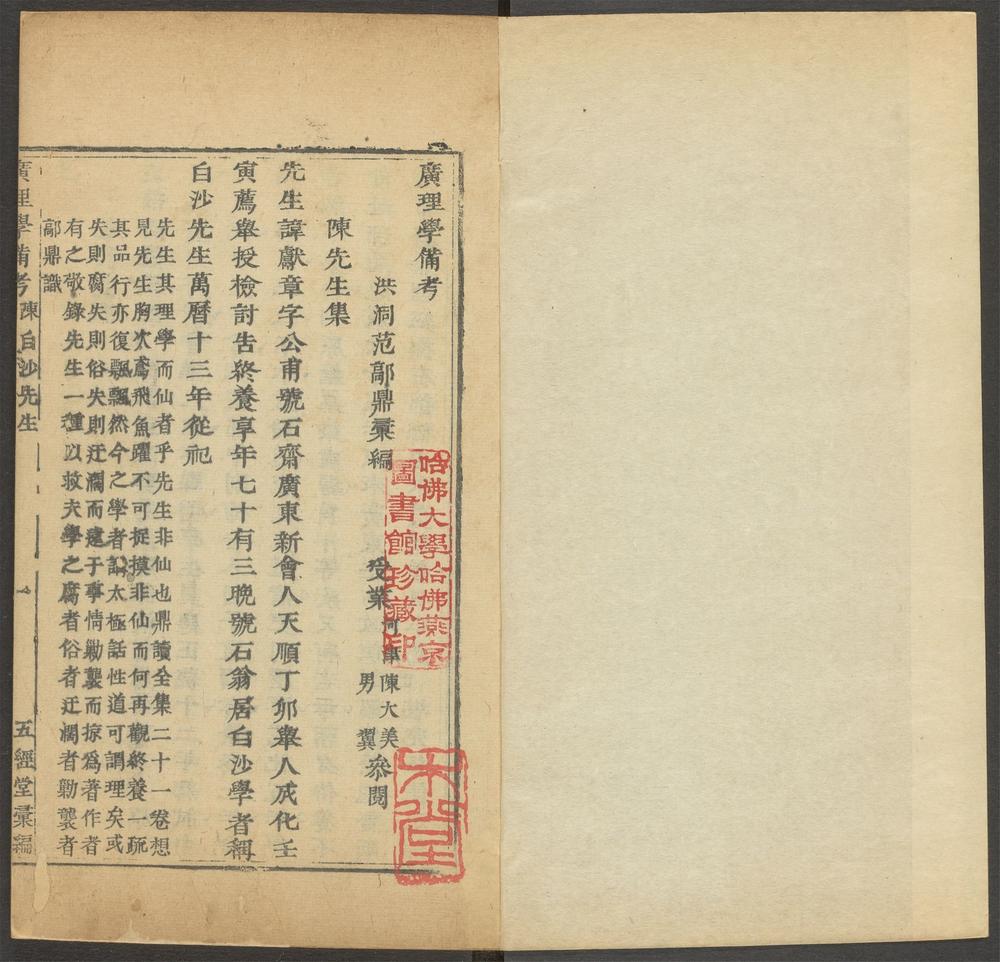 廣理學備考
洪洞范鄗鼎彙編
受業 河津陳大美
男 翼 叅閱
陳先生集
先生諱獻章字公甫號石齋廣東新會人天順丁卯舉人成化壬
寅薦舉授檢討告終養享年七十有三晚號石翁居白沙學者稱
白沙先生萬曆十三年從祀
先生其理學而仙者乎先生非仙也鼎讀全集二十一卷想
見先生胸次鳶飛魚躍不可捉摸非仙而何再觀終養一疏
其品行亦復飄飄然今之學者話太極話性道可謂理矣或
失則腐失則俗失則迂濶而遠于事情勦襲而掠爲著作者
有之敬錄先生一種以救夫學之腐者俗者迂濶者勦襲者
鄗鼎識
廣理學備考 陳白沙先生 一 五經堂彙編
哈佛大學哈佛燕京
圖書館珍藏印